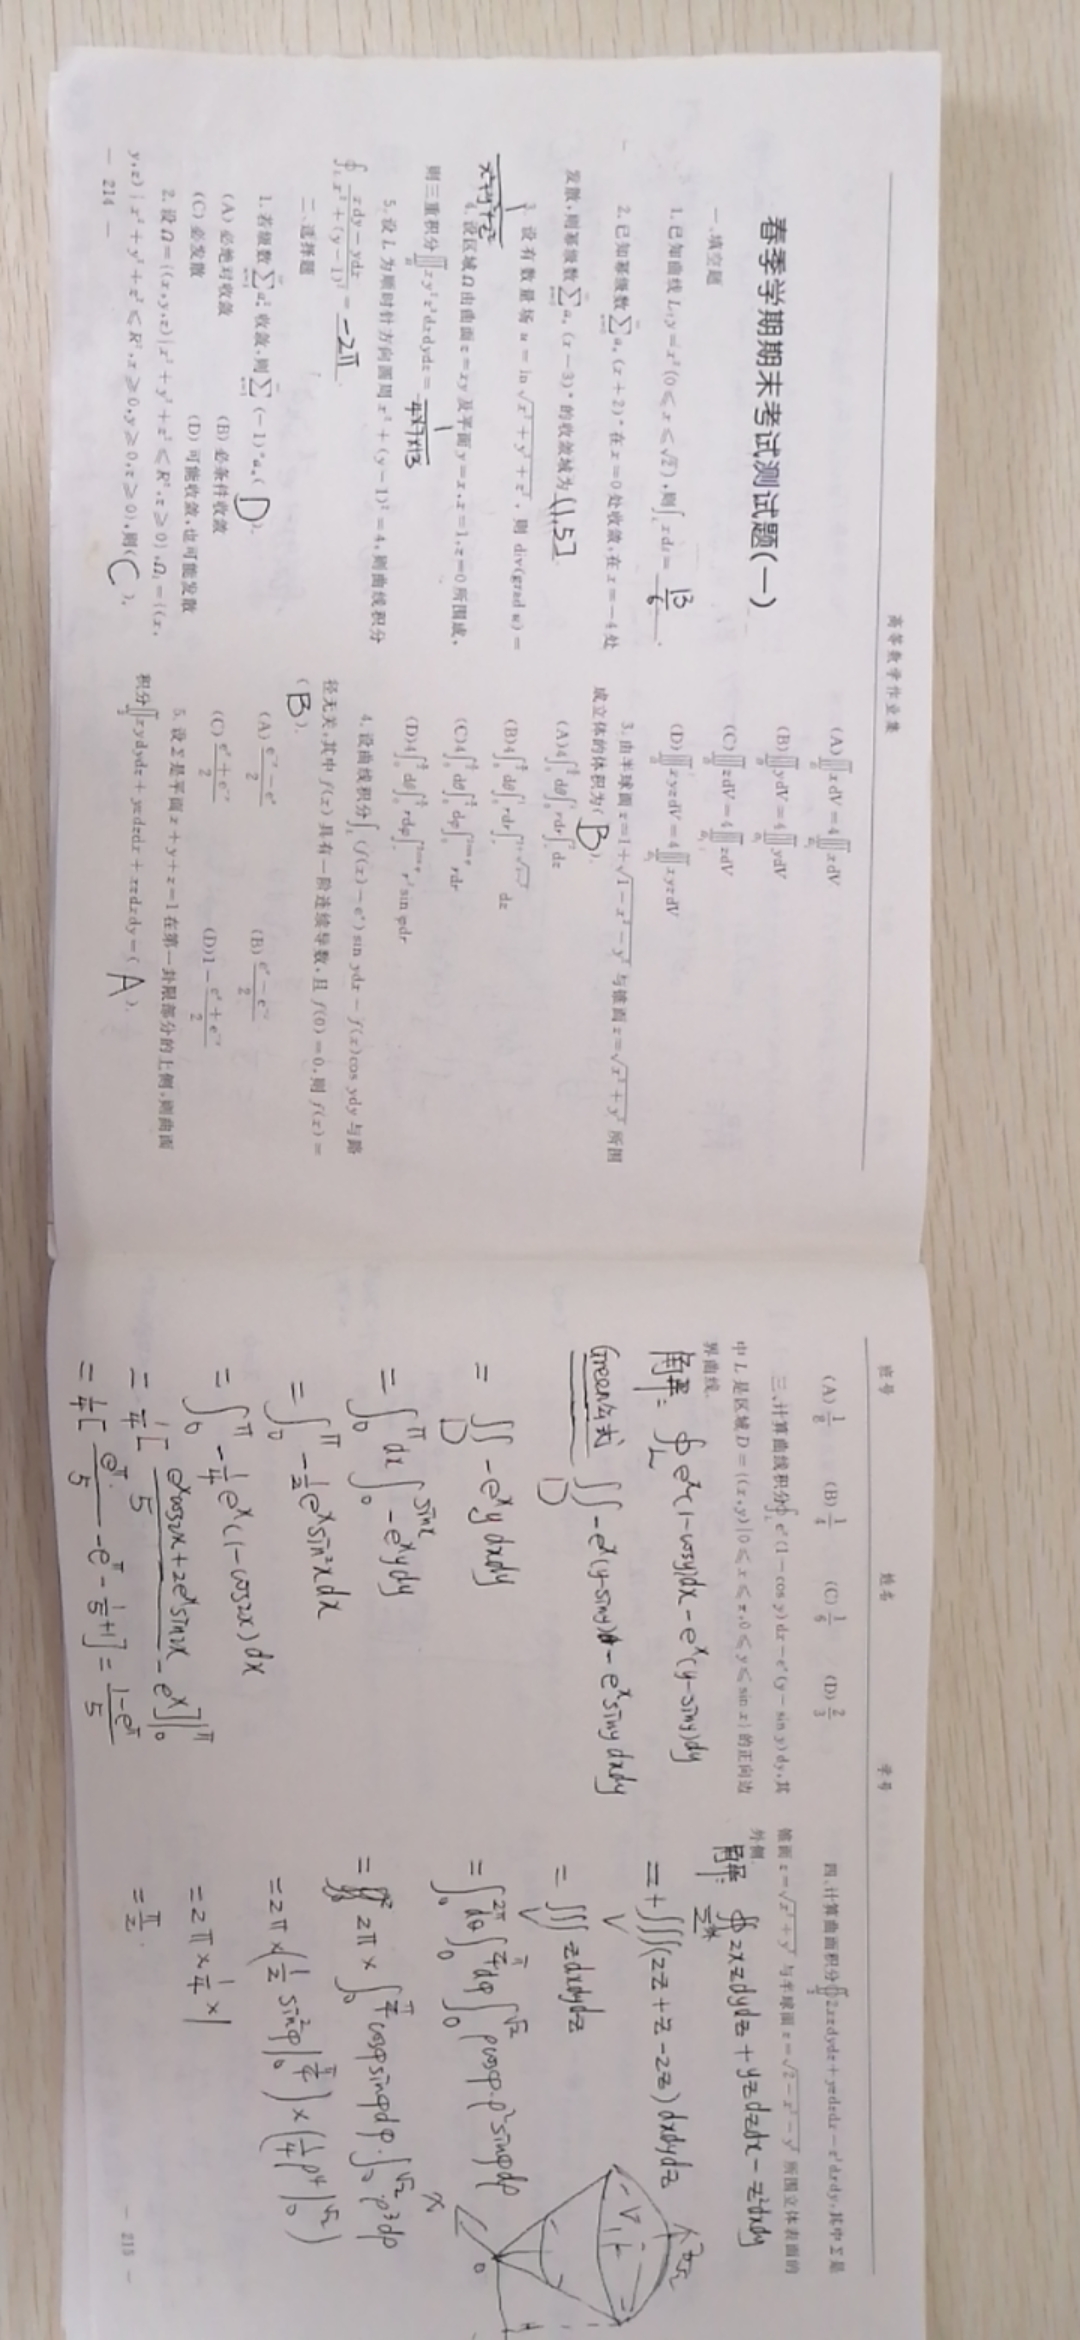 高等数学作业集
春季学期期末考试测试题(一)
一、填空题
1. 已知曲线 L:y=x²(0≤x≤√2),则∫_L x ds= 13/6 .
2. 已知幂级数∑aₙ(x+2)ⁿ在x=0处收敛,在x=-4处
发散,则幂级数∑aₙ(x-3)ⁿ的收敛域为 (1,5] .
3. 设有数量场 u=ln√(x²+y²+z²), 则 div(grad u)=
1/(x²+y²+z²)
4. 设区域Ω由曲面z=xy及平面y=x,x=1,z=0所围成,
则三重积分∭_Ω xy²z³dxdydz= 1/(4×7×13)
5. 设L为顺时针方向圆周x²+(y-1)²=4,则曲线积分
∮_L (xdy-ydx)/(x²+(y-1)²)= -2π .
二、选择题
1. 若级数∑aₙ²收敛,则∑(-1)ⁿaₙ( D ).
(A) 必绝对收敛 (B) 必条件收敛
(C) 必发散 (D) 可能收敛,也可能发散
2. 设Ω={(x,y,z)|x²+y²+z²≤R²,z≥0},Ω₁={(x,
y,z)|x²+y²+z²≤R²,x≥0,y≥0,z≥0},则( C ).
— 214 —
(A)∭_Ω xdV=4∭_Ω₁ xdV
(B)∭_Ω ydV=4∭_Ω₁ ydV
(C)∭_Ω zdV=4∭_Ω₁ zdV
(D)∭_Ω xyzdV=4∭_Ω₁ xyzdV
3. 由半球面z=1+√(1-x²-y²)与锥面z=√(x²+y²)所围
成立体的体积为( B ).
4. 设曲线积分∫_L(f(x)-eˣ)sin ydx-f(x)cos ydy与路
径无关,其中f(x)具有一阶连续导数,且f(0)=0,则f(x)=
( B ).
(A) (e⁻ˣ-eˣ)/2 (B) (eˣ-e⁻ˣ)/2
(C) (eˣ+e⁻ˣ)/2 (D)1-(eˣ+e⁻ˣ)/2
5. 设Σ是平面x+y+z=1在第一卦限部分的上侧,则曲面
积分∬_Σ xydydz+yzdzdx+xzdxdy=( A ).
班号 姓名 学号
(A) 1/8 (B) 1/4 (C) 1/6 (D) 2/3
三、计算曲线积分∮_L eˣ(1-cos y)dx-eˣ(y-sin y)dy,其
中L是区域D={(x,y)|0≤x≤π,0≤y≤sin x}的正向边
界曲线.
解: ∮_L eˣ(1-cosy)dx-eˣ(y-siny)dy
Green公式 ∬_D -eˣ(y-siny)-eˣsiny dxdy
= ∬_D -eˣy dxdy
= ∫₀^π dx ∫₀^sinx -eˣydy
= ∫₀^π -½eˣsin²xdx
= ∫₀^π -¼eˣ(1-cos2x)dx
= ¼[(eˣcos2x+2eˣsin2x)/5 - eˣ]|₀^π
= ¼[e^π/5 - e^π - 1/5+1] = (1-e^π)/5
四、计算曲面积分∯_Σ 2xzdydz+yzdzdx-z²dxdy,其中Σ是
锥面z=√(x²+y²)与半球面z=√(2-x²-y²)所围立体表面的
外侧.
解: ∯_Σ外 2xzdydz+yzdzdx-z²dxdy
=+∭_V(2z+z-2z)dxdydz
= ∭_V zdxdydz
=∫₀^2π dθ∫₀^π/4 dφ∫₀^√2 ρcosφ·ρ²sinφdρ
= 2π×∫₀^π/4 cosφsinφdφ·∫₀^√2 ρ³dρ
=2π×(½sin²φ|₀^π/4)×(¼ρ⁴|₀^√2)
=2π×¼×1
=π/2.
V
x
0
— 215 —